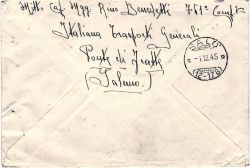 Mitt. Cap. Magg. Rino Benedetti 761ª Compª
Italiana Trasporti Generali
Ponte di Fratte
(Salerno)
1.12.45